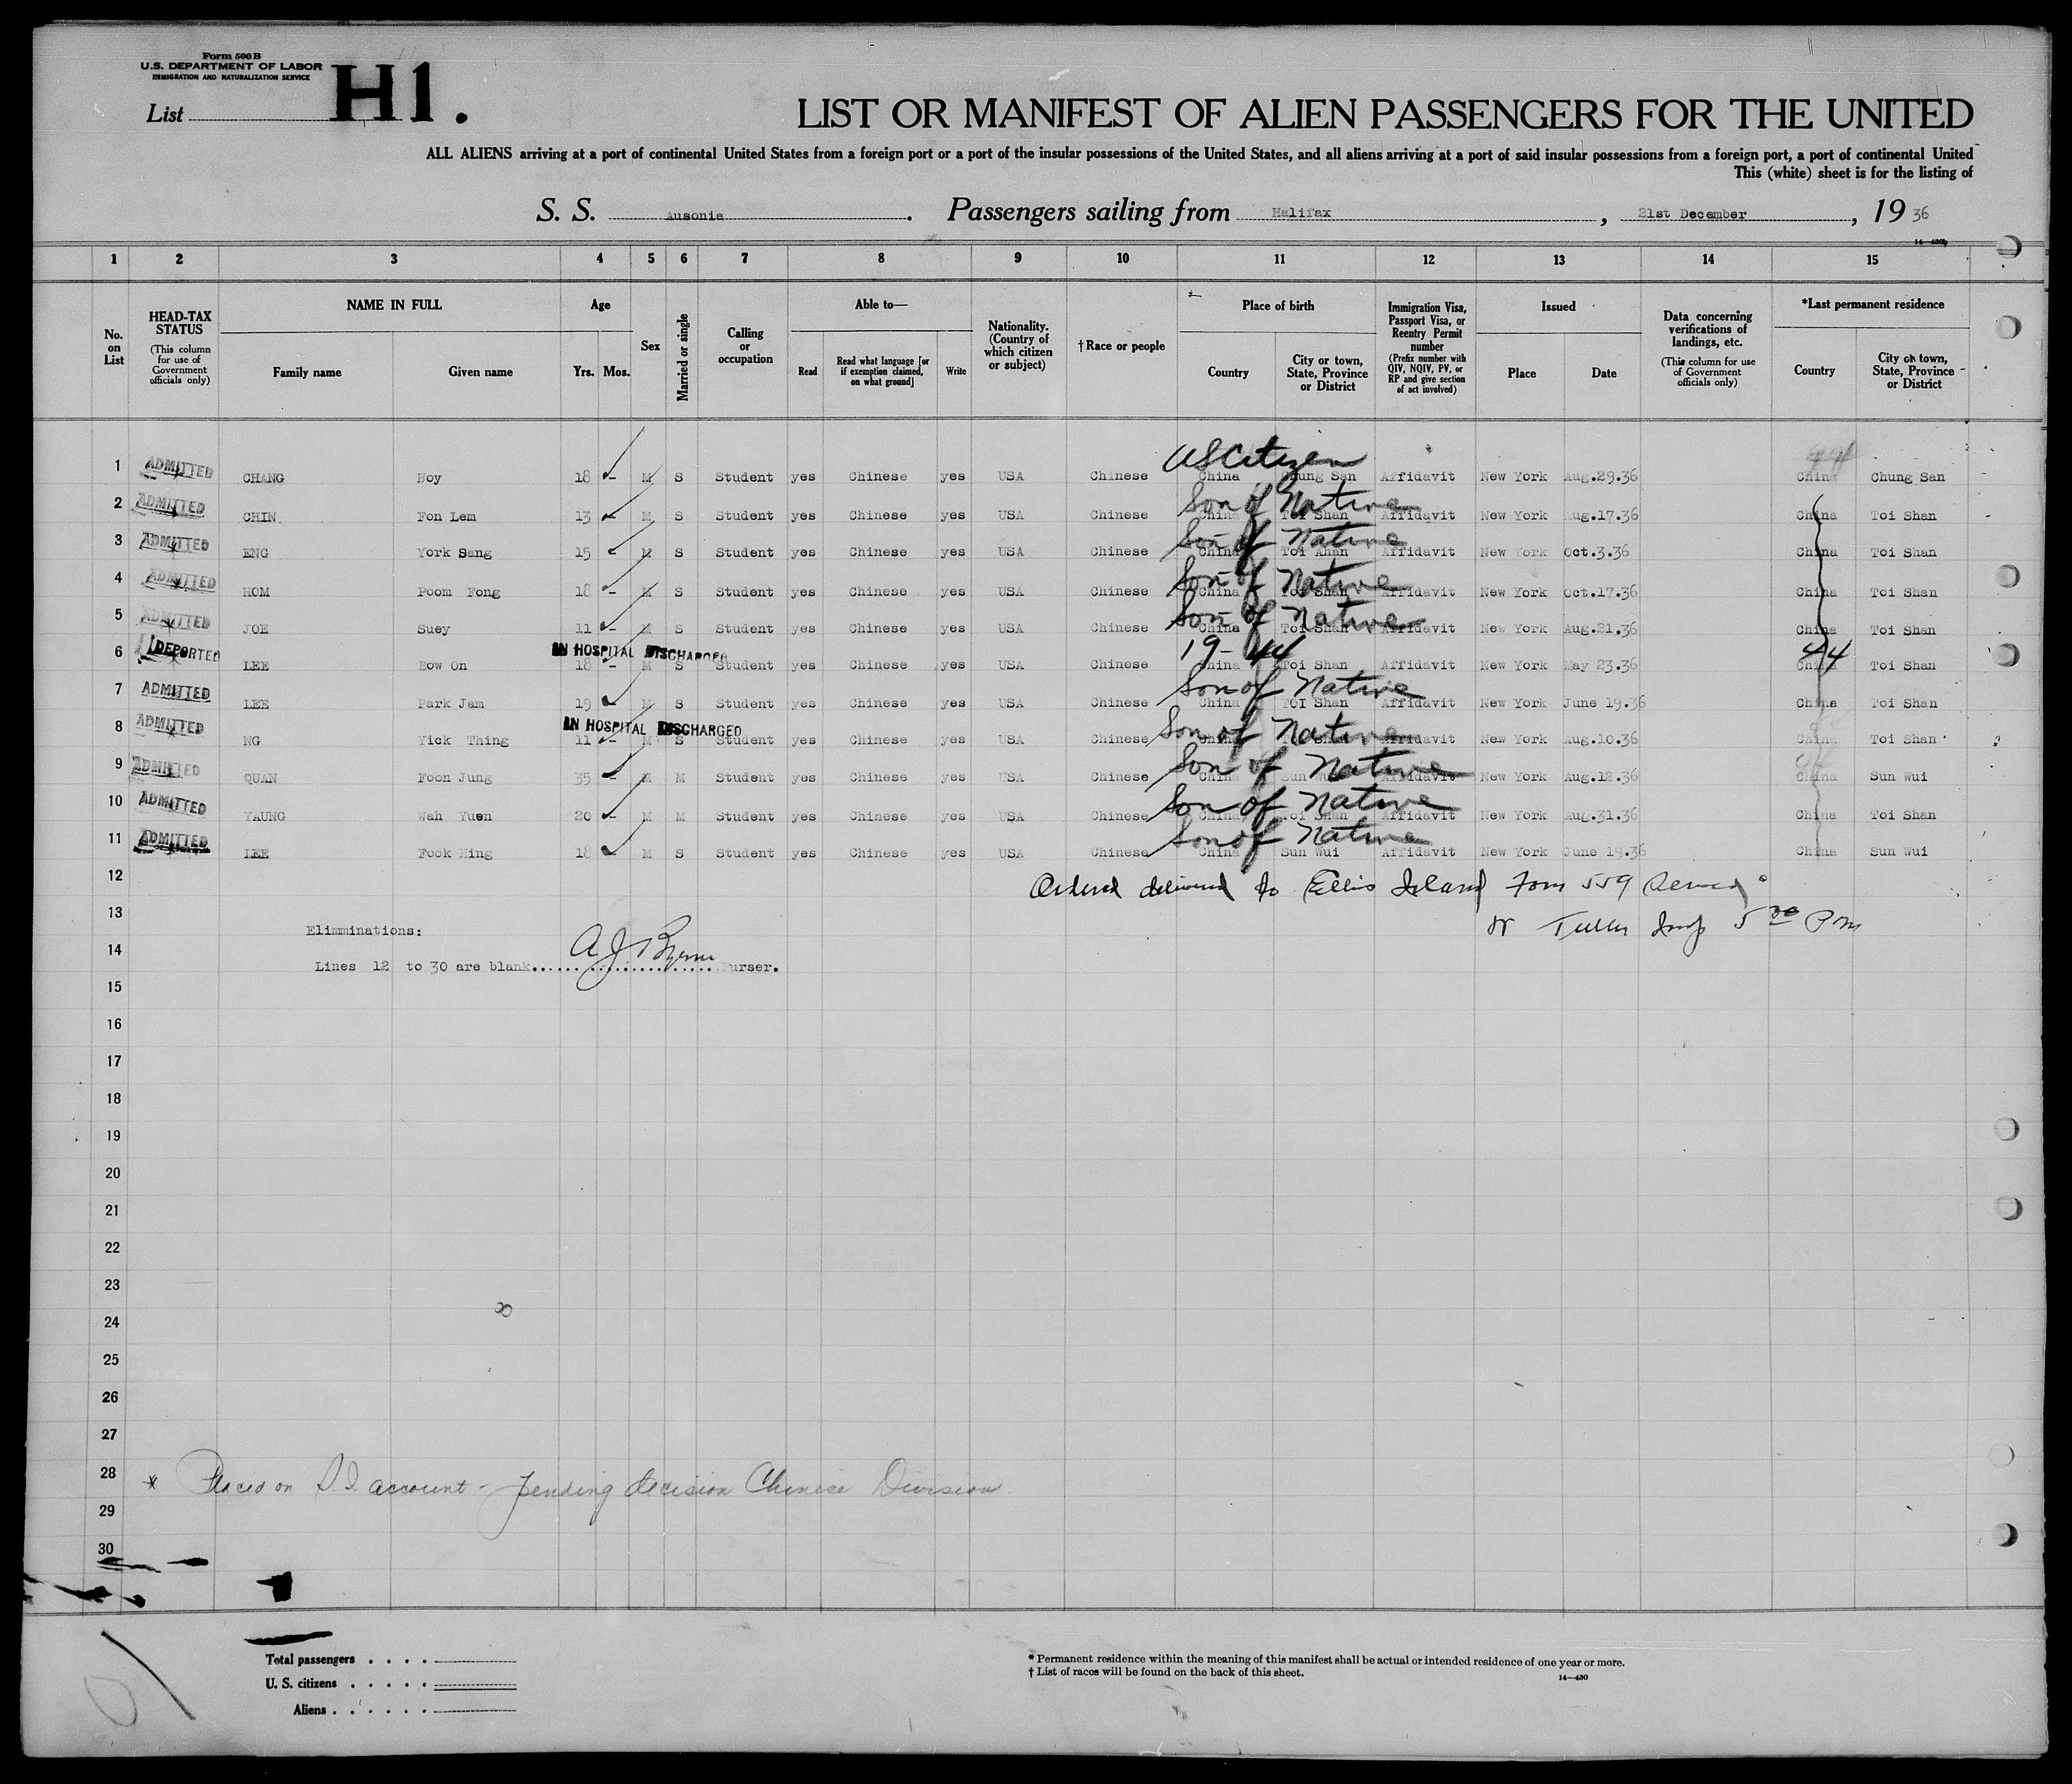 Form 500 B
U.S. DEPARTMENT OF LABOR
IMMIGRATION AND NATURALIZATION SERVICE
List H1.
LIST OR MANIFEST OF ALIEN PASSENGERS FOR THE UNITED
ALL ALIENS arriving at a port of continental United States from a foreign port or a port of the insular possessions of the United States, and all aliens arriving at a port of said insular possessions from a foreign port, a port of continental United
This (white) sheet is for the listing of
S. S. Ausonia. Passengers sailing from Halifax, 21st December, 1936
1 2 3 4 5 6 7 8 9 10 11 12 13 14 15
No. on List
HEAD-TAX STATUS (This column for use of Government officials only)
NAME IN FULL
Family name Given name
Age
Yrs. Mos.
Sex
Married or single
Calling or occupation
Able to—
Read Read what language [or if exemption claimed, on what ground] Write
Nationality. (Country of which citizen or subject)
†Race or people
Place of birth
Country City or town, State, Province or District
Immigration Visa, Passport Visa, or Reentry Permit number (Prefix number with QIV, NQIV, PV, or RP and give section of act involved)
Issued
Place Date
Data concerning verifications of landings, etc. (This column for use of Government officials only)
*Last permanent residence
Country City or town, State, Province or District
US Citizen
1 ADMITTED CHANG Hoy 18 - M S Student yes Chinese yes USA Chinese China Chung San Affidavit New York Aug.29.36 China Chung San
Son of Native
2 ADMITTED CHIN Fon Lem 13 - M S Student yes Chinese yes USA Chinese China Toi Shan Affidavit New York Aug.17.36 China Toi Shan
Son of Native
3 ADMITTED ENG York Sang 15 - M S Student yes Chinese yes USA Chinese China Toi Ahan Affidavit New York Oct.3.36 China Toi Shan
Son of Native
4 ADMITTED HOM Poom Fong 18 - M S Student yes Chinese yes USA Chinese China Toi Shan Affidavit New York Oct.17.36 China Toi Shan
Son of Native
5 ADMITTED JOE Suey 11 - M S Student yes Chinese yes USA Chinese China Toi Shan Affidavit New York Aug.21.36 China Toi Shan
IN HOSPITAL DISCHARGED 19-44 44
6 DEPORTED LEE Bow On 18 - M S Student yes Chinese yes USA Chinese China Toi Shan Affidavit New York May 23.36 China Toi Shan
Son of Native
7 ADMITTED LEE Park Jam 19 - M S Student yes Chinese yes USA Chinese China TOI Shan Affidavit New York June 19.36 China Toi Shan
IN HOSPITAL DISCHARGED Son of Native
8 ADMITTED NG Yick Thing 11 - M S Student yes Chinese yes USA Chinese China Toi Shan Affidavit New York Aug.10.36 China Toi Shan
Son of Native
9 ADMITTED QUAN Foon Jung 35 - M M Student yes Chinese yes USA Chinese China Sun Wui Affidavit New York Aug.12.36 China Sun Wui
Son of Native
10 ADMITTED YAUNG Wah Yuen 20 - M M Student yes Chinese yes USA Chinese China Toi Shan Affidavit New York Aug.31.36 China Toi Shan
Son of Native
11 ADMITTED LEE Fook Hing 18 - M S Student yes Chinese yes USA Chinese China Sun Wui Affidavit New York June 19.36 China Sun Wui
12 Ordered delivered to Ellis Island Form 559 Served
13 Insp 5 00 PM
Elimminations:
14 A J Byrne
Lines 12 to 30 are blank.................... Purser.
15
16
17
18
19
20
21
22
23
24
25
26
27
28 * Placed on S.I. account - pending decision Chinese Division
29
30
Total passengers
U. S. citizens
Aliens
* Permanent residence within the meaning of this manifest shall be actual or intended residence of one year or more.
† List of races will be found on the back of this sheet.
14—430